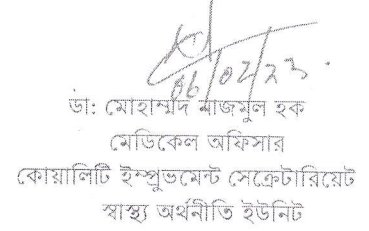 06/02/23
ডা: মোহাম্মদ নাজমুল হক
মেডিকেল অফিসার
কোয়ালিটি ইম্প্রুভমেন্ট সেক্রেটারিয়েট
স্বাস্থ্য অর্থনীতি ইউনিট